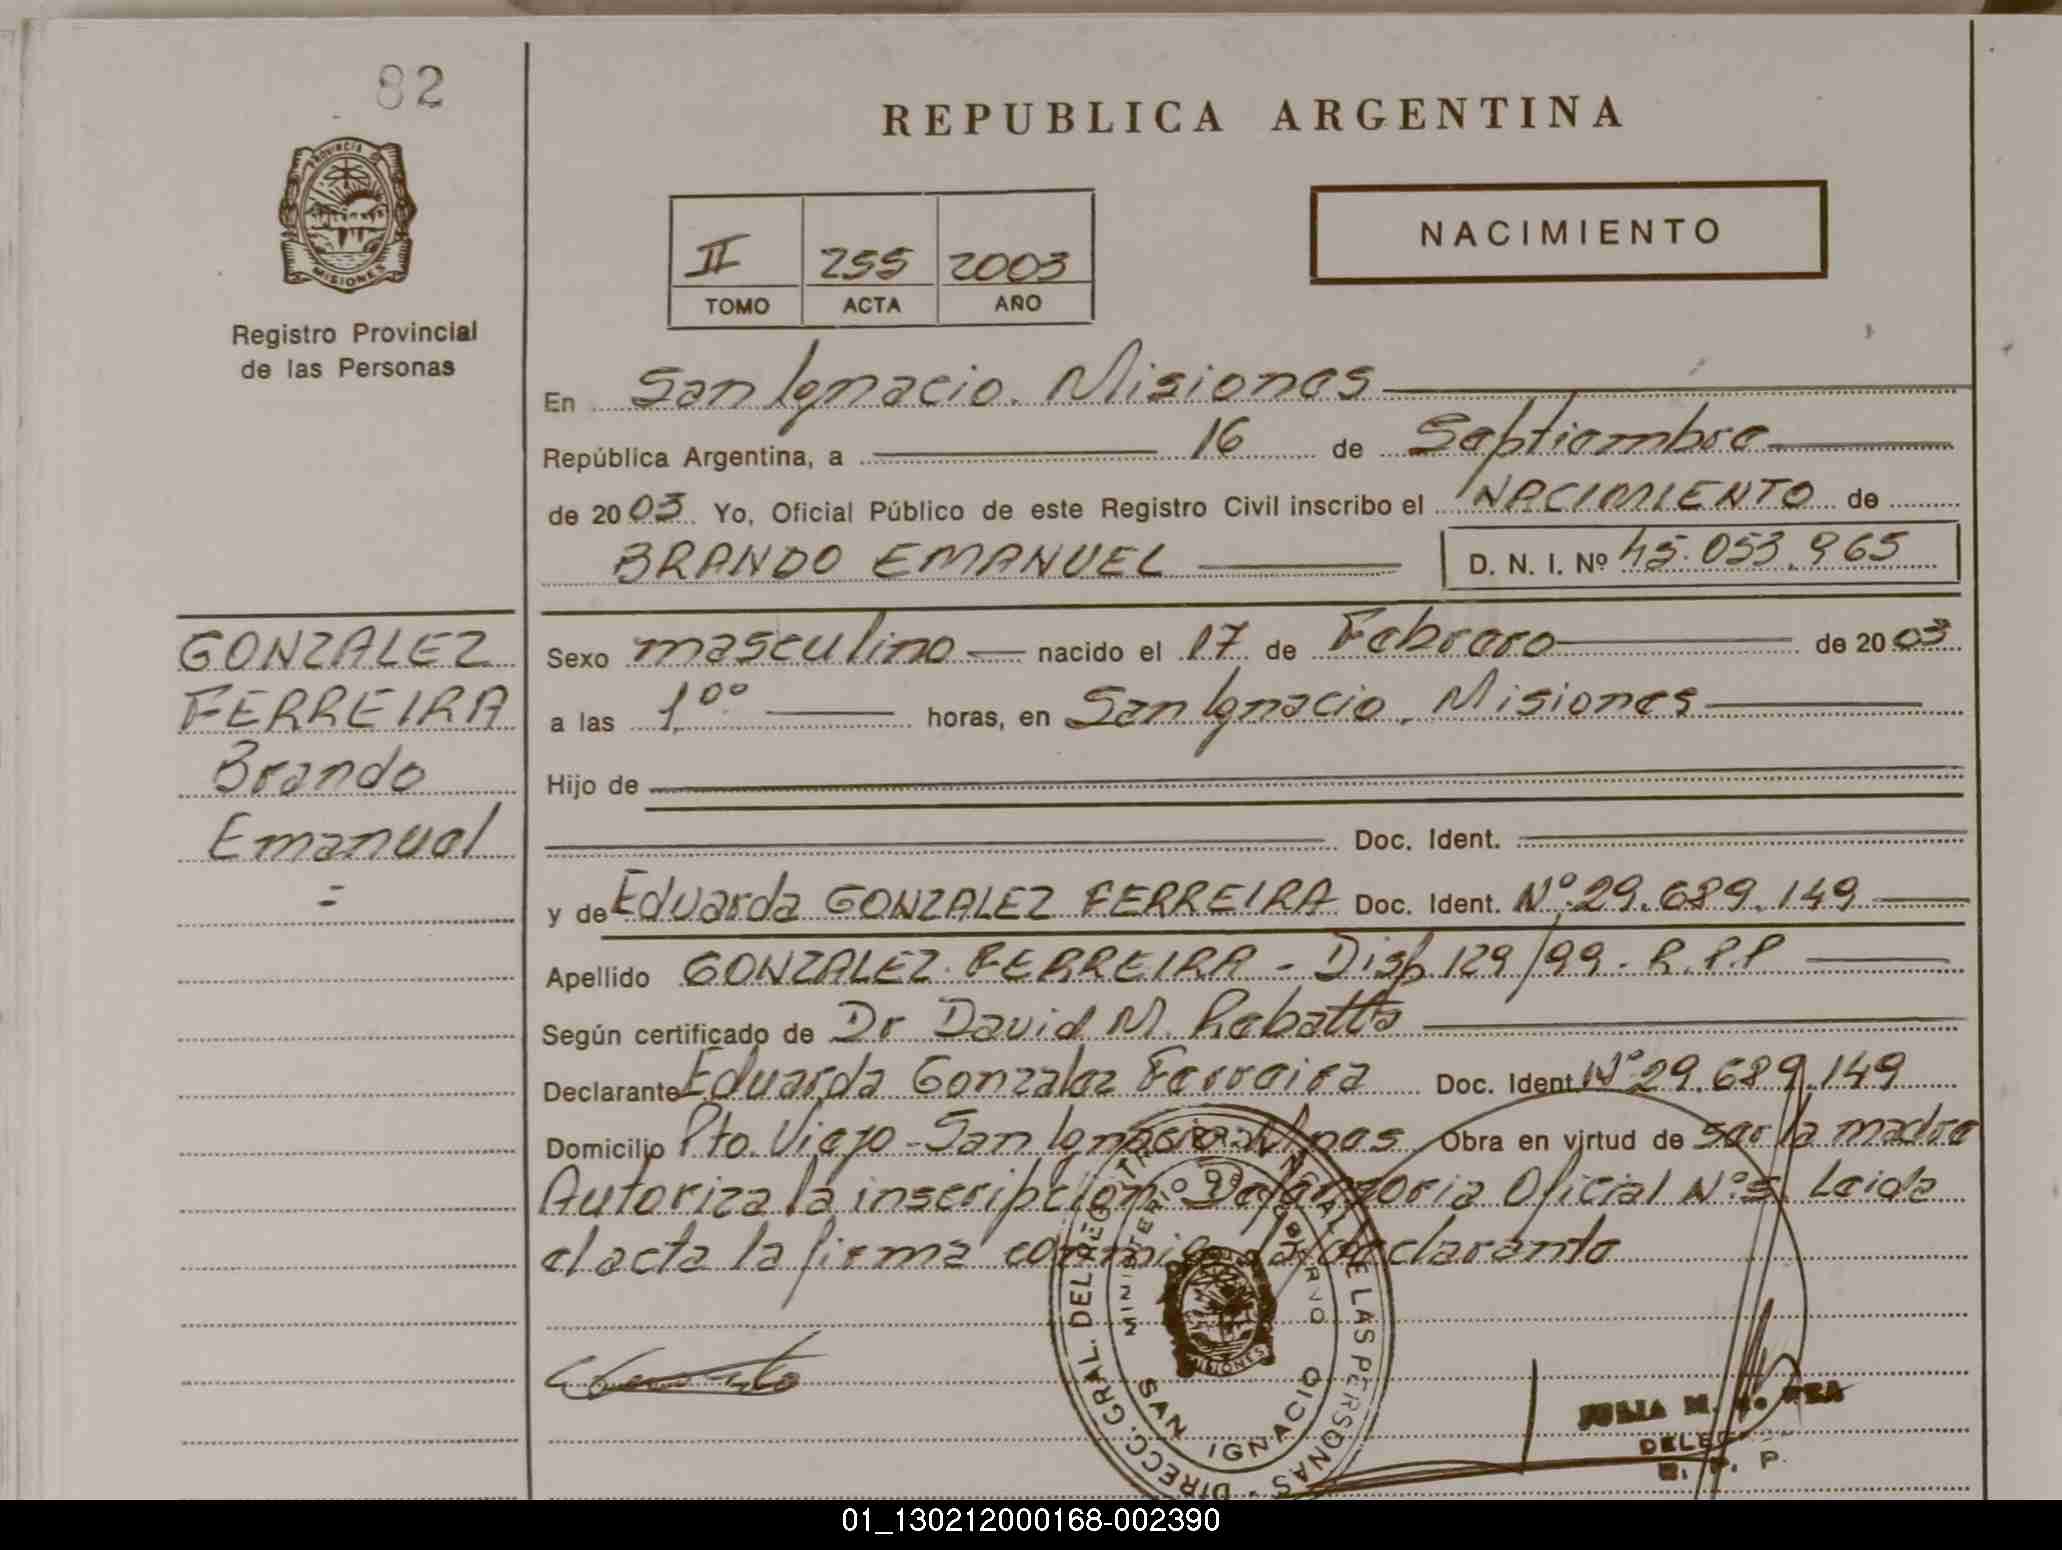 82
REPUBLICA ARGENTINA
PROVINCIA DE
MISIONES
Registro Provincial
de las Personas
II 255 2003
TOMO ACTA AÑO
NACIMIENTO
En San Ignacio. Misiones
República Argentina, a 16 de Septiembre
de 2003 Yo, Oficial Público de este Registro Civil inscribo el NACIMIENTO de
BRANDO EMANUEL D. N. I. Nº 45.053.965
GONZALEZ
FERREIRA
Brando
Emanuel
=
Sexo masculino nacido el 17 de Febrero de 2003
a las 1,00 horas, en San Ignacio, Misiones
Hijo de
Doc. Ident.
y de Eduarda GONZALEZ FERREIRA Doc. Ident. Nº 29.689.149
Apellido GONZALEZ FERREIRA - Disp 129/99. R.P.P
Según certificado de Dr David M. Rebatta
Declarante Eduarda Gonzalez Ferreira Doc. Ident Nº 29.689.149
Domicilio Pto. Viejo - San Ignacio Mnes Obra en virtud de ser la madre
Autoriza la inscripción Defensoria Oficial Nº 5. Leida
el acta la firma conmigo la declarante
DIRECC. GRAL. DEL REGISTRO PROVINCIAL DE LAS PERSONAS
MINISTERIO DE GOBIERNO
MISIONES
SAN IGNACIO
JULIA M.
R. P. P.
01_130212000168-002390